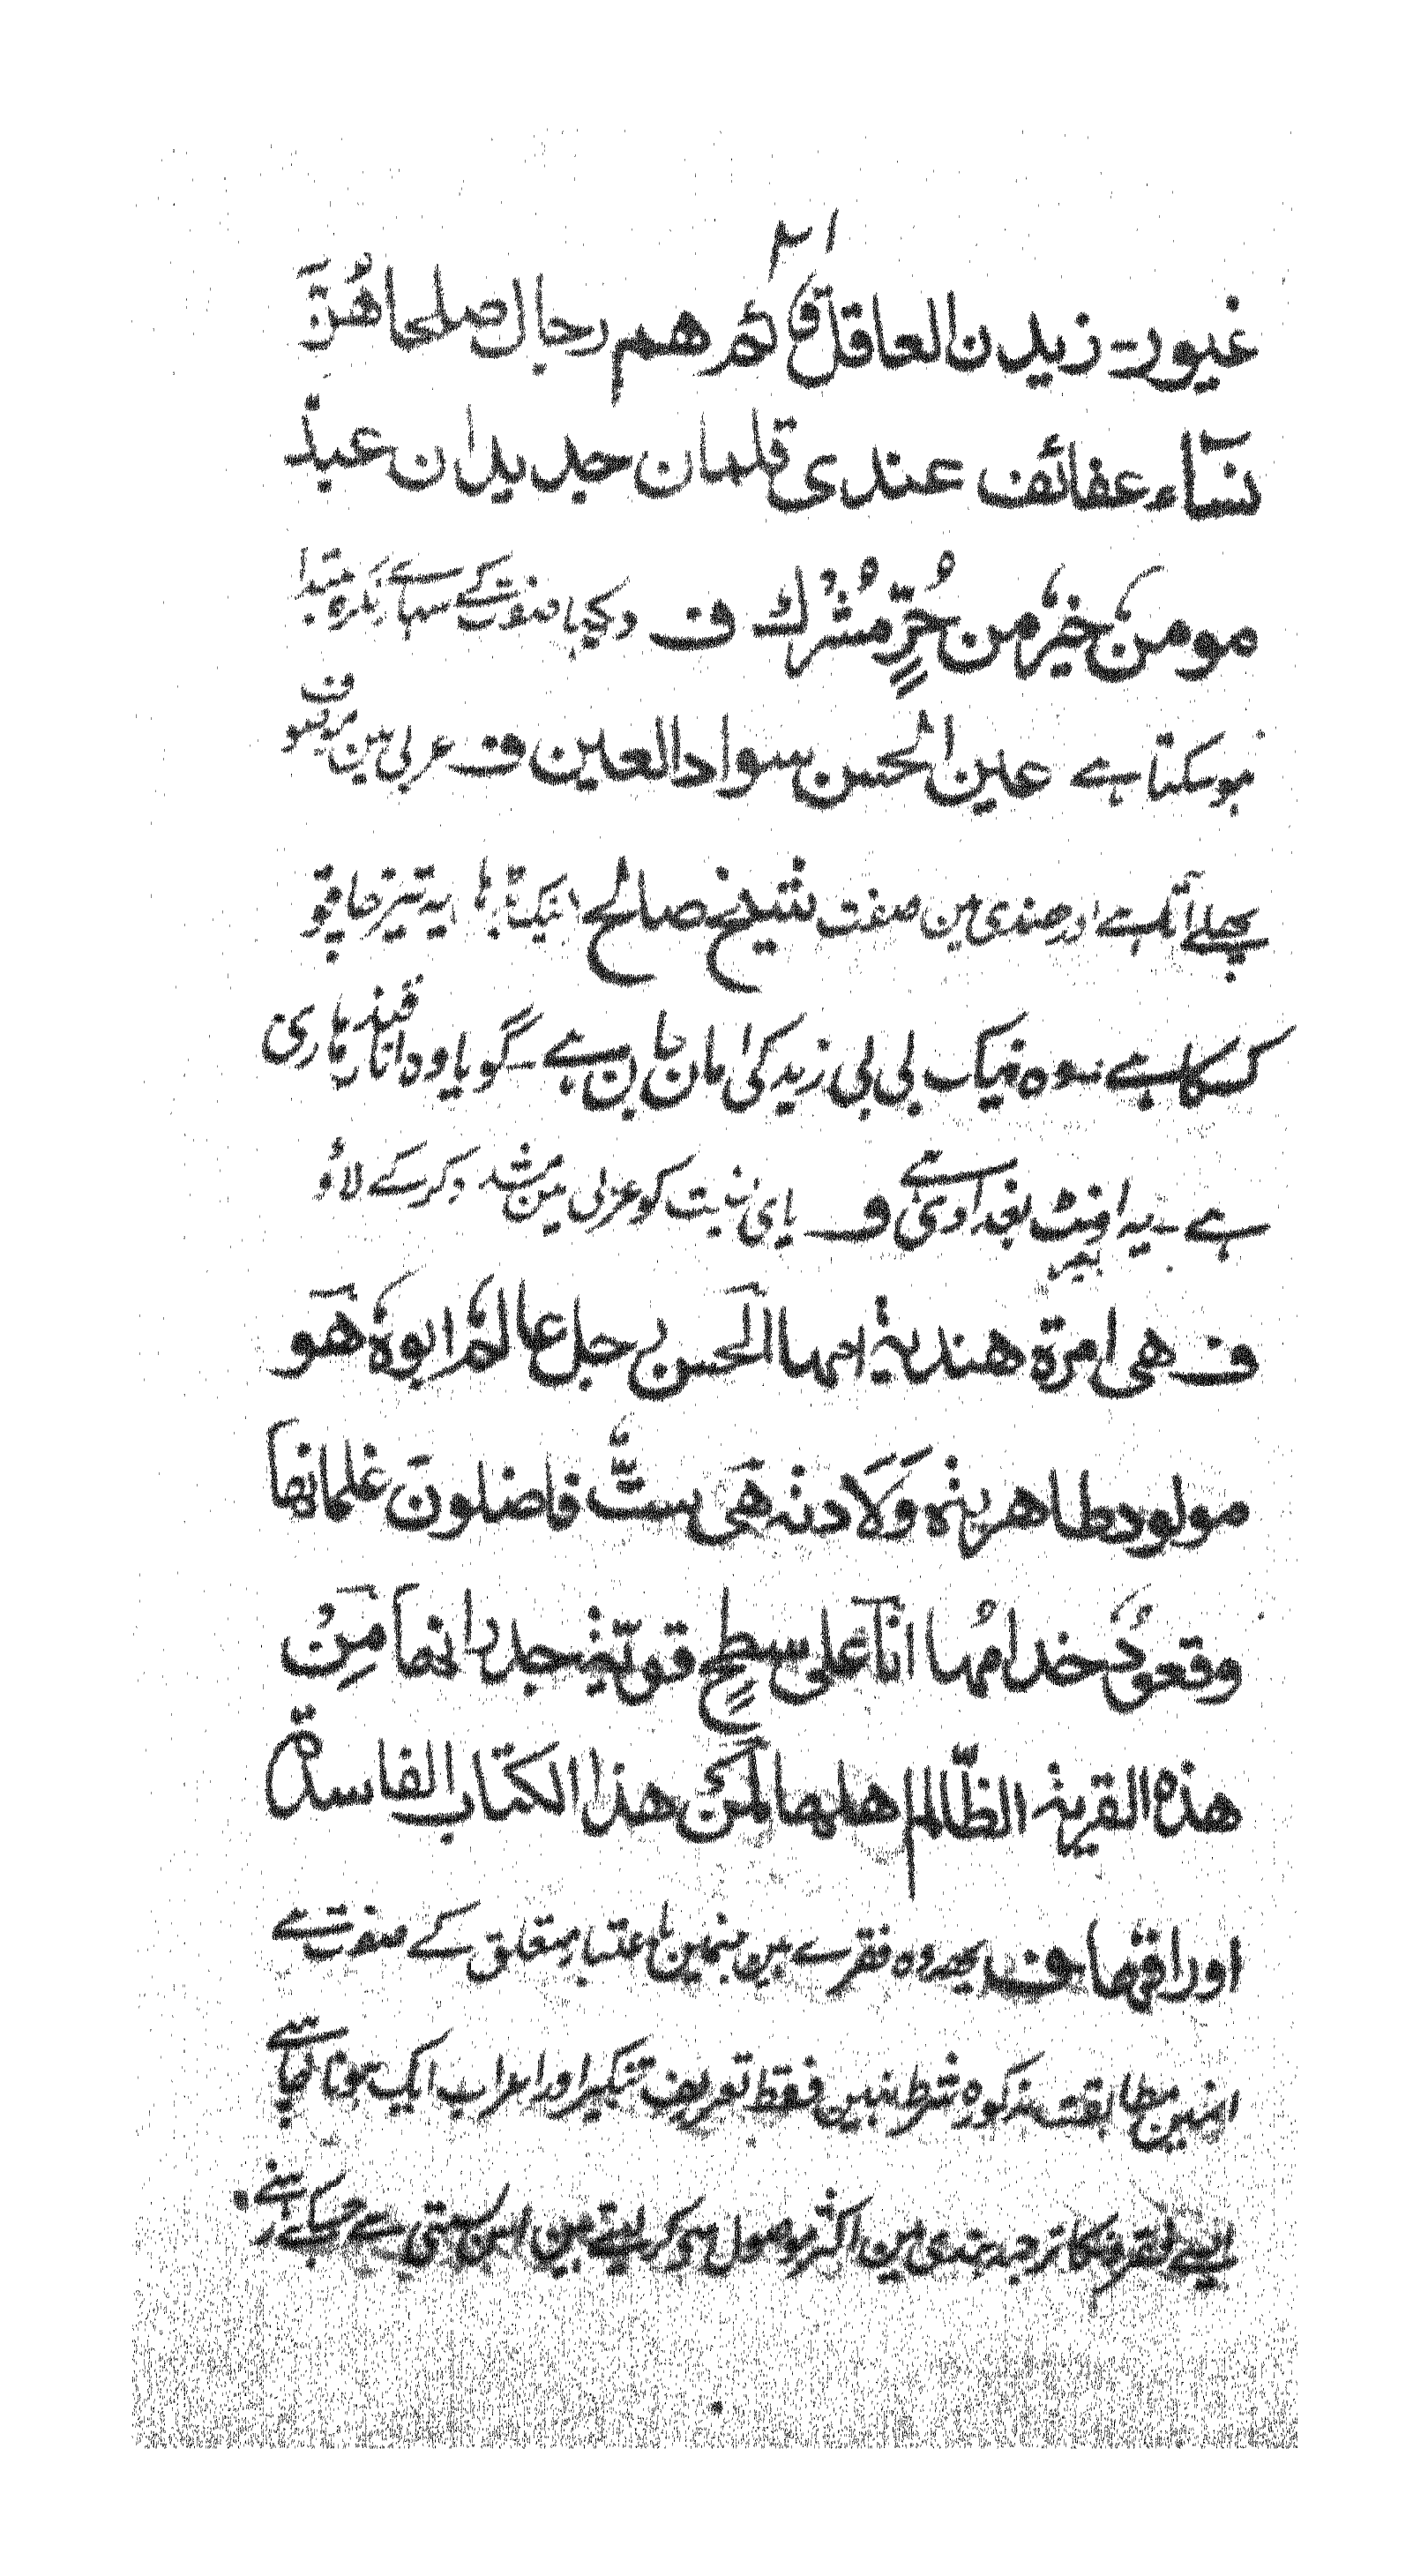 ۲۱
غیور۔ زیدن العاقل ق لمٌ هم رجال صلحا هُنَّ
نسآء عفائف عندی قلمان جدیدان عبدٌ
مومنٌ خیرٌ من حُرٍّ مُشرک ف دیکھا صفت کے سہارے نکرہ مبتدا
ہوسکتا ہے عین الحسن سواد العین ف عربی مین موصوف
پہلے آتا ہے اور ہندی مین صفت شیخ صالح نیک یہ تیز چاقو
کسکا ہے۔ وہ نیک بی بی زید کی مان بہن ہے۔ گویا وہ انار قندہاری
ہے۔ یہ اونٹ بغدادی ہے ف یای نسبت کو عربی مین مشدد کرکے لاؤ
ف هی امرة هندیة امها الحسن رجل عالمٌ ابوهٗ هو
مولود طاهرینه ولادته هی ستٌّ فاضلون غلمانها
وقعودٌ خدامُها اناعلی سطحٍ قویّةٍ جدرانها مِنْ
هذه القریة الظّالم اهلها لمن هذا الکتاب الفاسدة
اوراقها ف یہ وہ فقرے ہین جنمین باعتبار متعلق کے صفت ہے
انمین مطابقت مذکورہ شرط نہین فقط تعریف تنکیر اور اعراب ایک ہونا چاہئے
ایسے فقرونکا ترجمہ ہندی مین اکثر موصول ہوکر لیتے ہین اس بستی سے جسکے رہنے